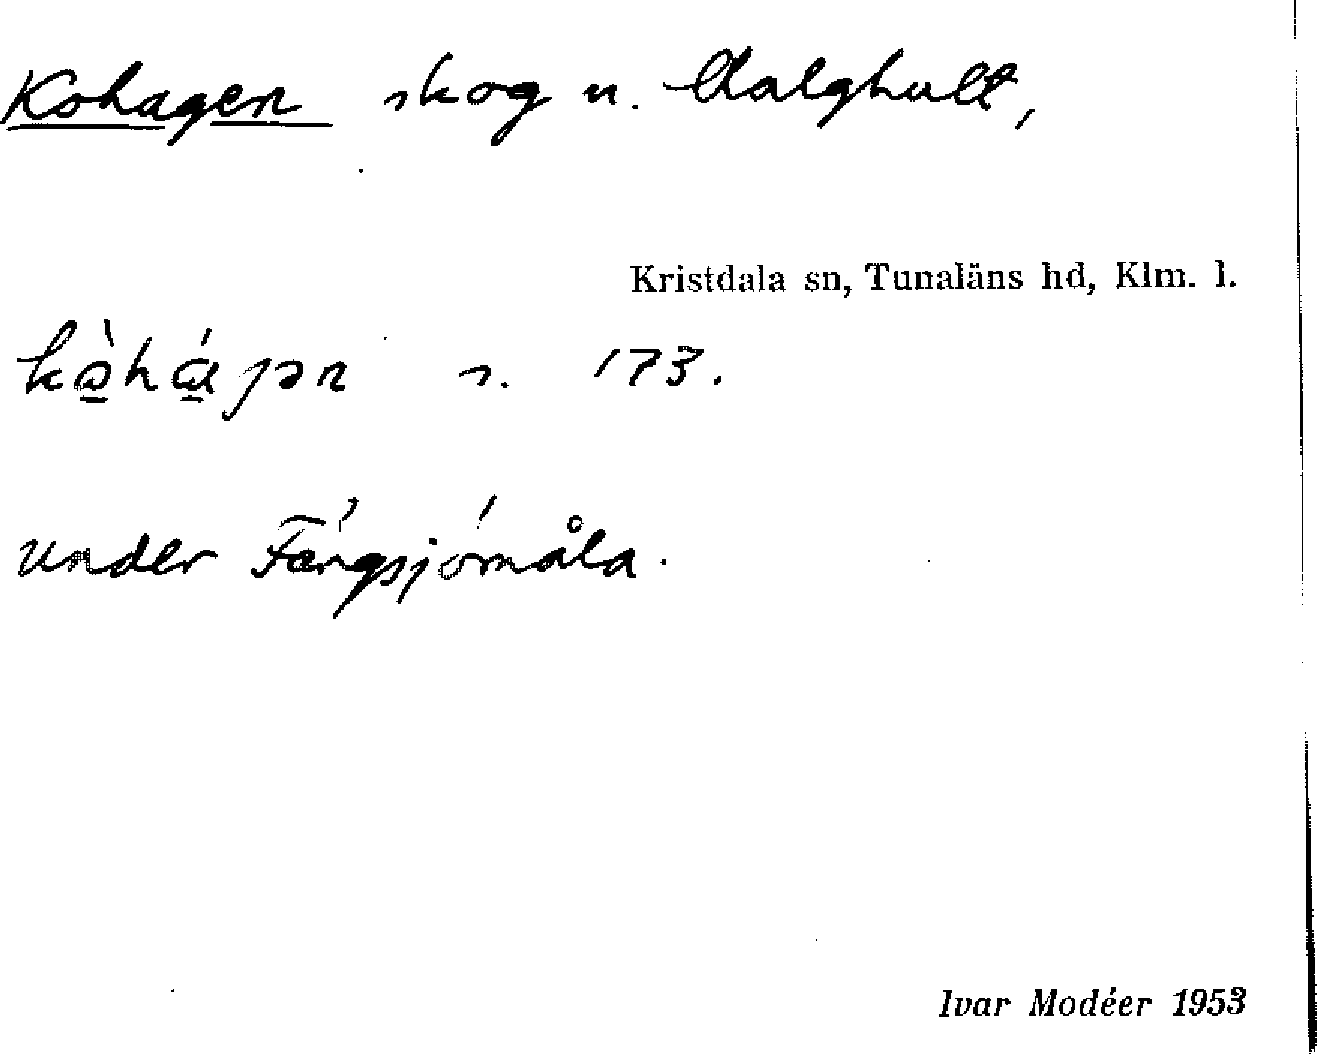 Kohagen skog u. Aalghult,
Kristdala sn, Tunaläns hd, Klm. l.
kòháγən s. 173.
under Fängsjömåla.
Ivar Modéer 1953